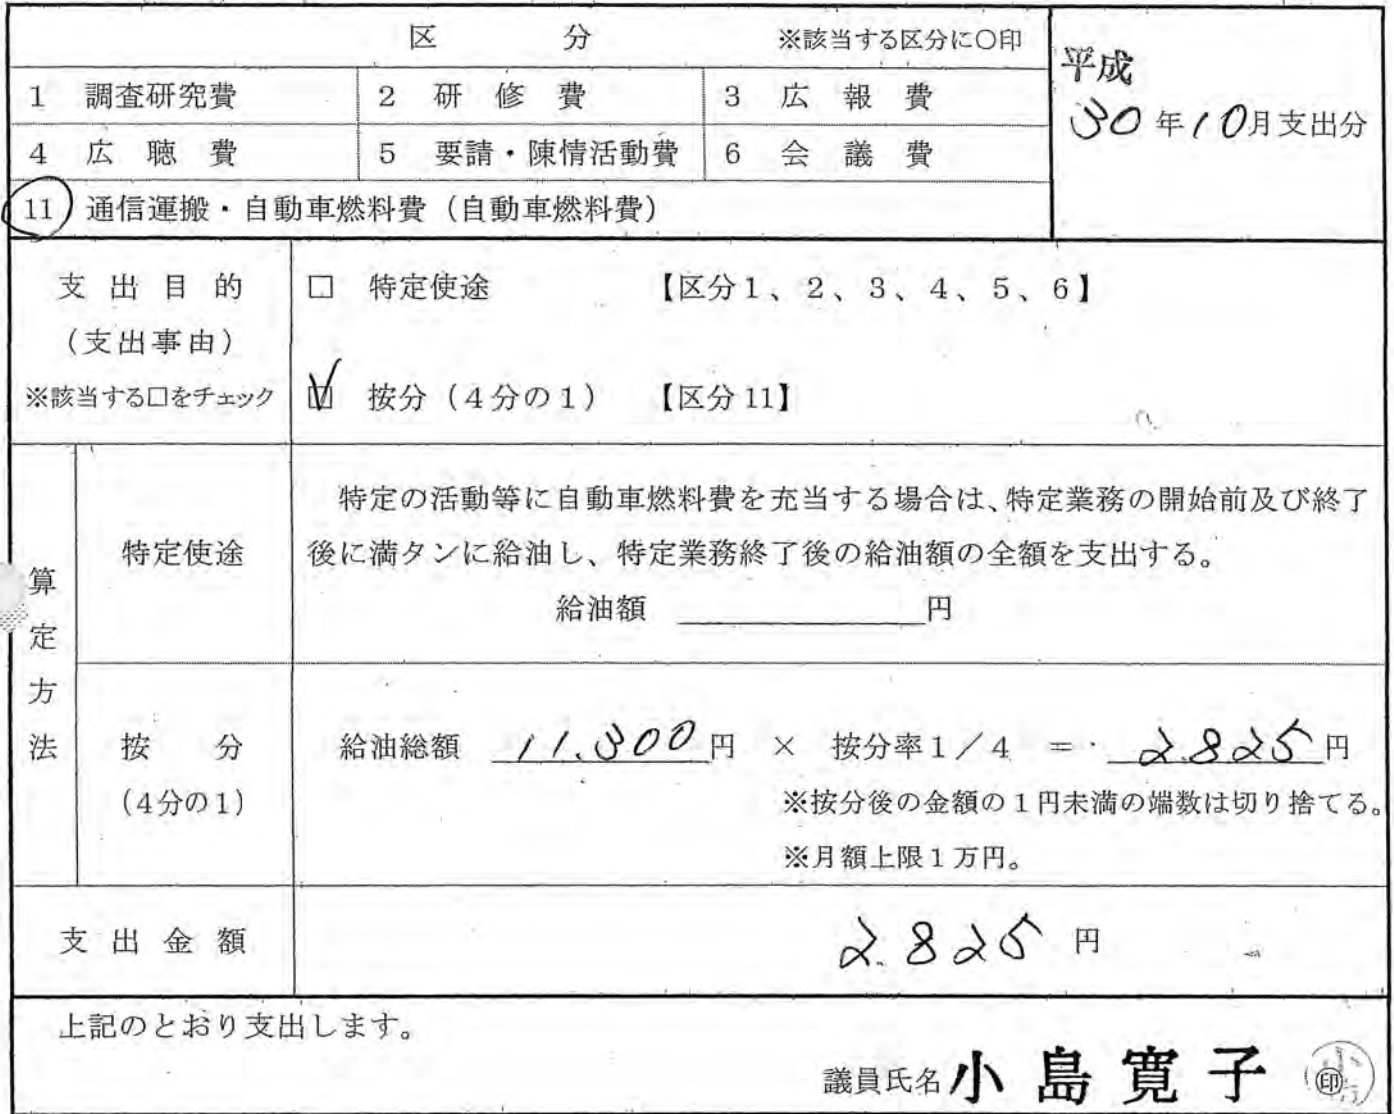 区 分 ※該当する区分に○印
平成
30年10月支出分
1 調査研究費 2 研修費 3 広報費
4 広聴費 5 要請・陳情活動費 6 会議費
11 通信運搬・自動車燃料費(自動車燃料費)
支出目的
(支出事由)
※該当する□をチェック
□ 特定使途 【区分1、2、3、4、5、6】
☑ 按分(4分の1) 【区分11】
算定方法
特定使途
特定の活動等に自動車燃料費を充当する場合は、特定業務の開始前及び終了
後に満タンに給油し、特定業務終了後の給油額の全額を支出する。
給油額 円
按分
(4分の1)
給油総額 11.300円 × 按分率1/4 = 2.825円
※按分後の金額の1円未満の端数は切り捨てる。
※月額上限1万円。
支出金額 2.825円
上記のとおり支出します。
議員氏名 小島寛子 ㊞